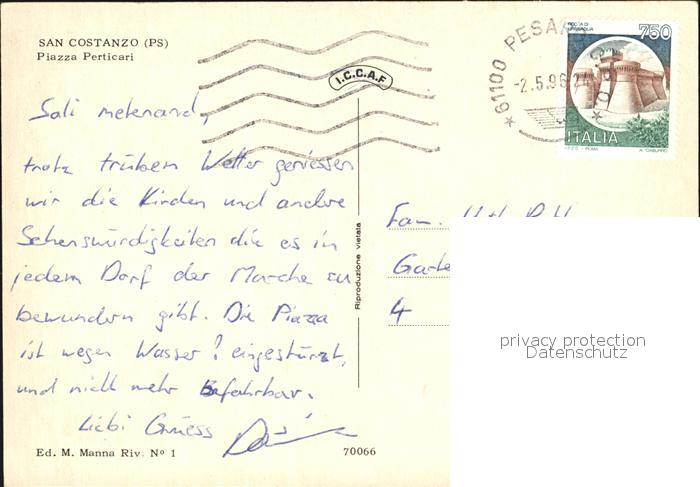 SAN COSTANZO (PS)
Piazza Perticari
I.C.C.A.F
61100 PESA
-2.5.96 24
750
ITALIA
I.P.Z.S. - ROMA
Sali metenand,
trotz trübem Wetter geniessen
wir die Kirchen und andere
Sehenswürdigkeiten die es in
jedem Dorf der Marche zu
bewundern gibt. Die Piazza
ist wegen Wasser! eingestürzt,
und nicht mehr Befahrbar.
Liebi Grüess
Riproduzione vietata
Fam.
Garte
4
privacy protection
Datenschutz
Ed. M. Manna Riv. Nº 1
70066